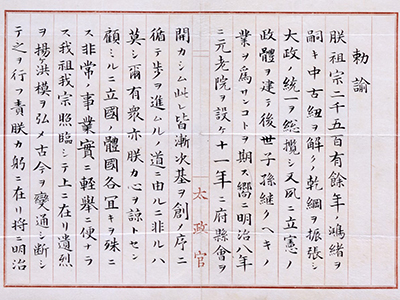 勅諭
朕祖宗二千五百有餘年ノ鴻緒ヲ
嗣キ中古紐ヲ解クノ乾綱ヲ振張シ
大政ノ統一ヲ総攬シ又夙ニ立憲ノ
政體ヲ建テ後世子孫継クヘキノ
業ヲ為サンコトヲ期ス嚮ニ明治八年
ニ元老院ヲ設ケ十一年ニ府縣會ヲ
開カシム此レ皆漸次基ヲ創メ序ニ
循テ歩ヲ進ムルノ道ニ由ルニ非ルハ
莫シ爾有衆亦朕カ心ヲ諒トセン
顧ミルニ立國ノ體國各宜キヲ殊ニ
ス非常ノ事業實ニ輕擧ニ便ナラ
ス我祖我宗照臨シテ上ニ在リ遺烈
ヲ揚ケ洪模ヲ弘メ古今ヲ變通シ断シ
テ之ヲ行フ責朕カ躬ニ在リ将ニ明治
太政官